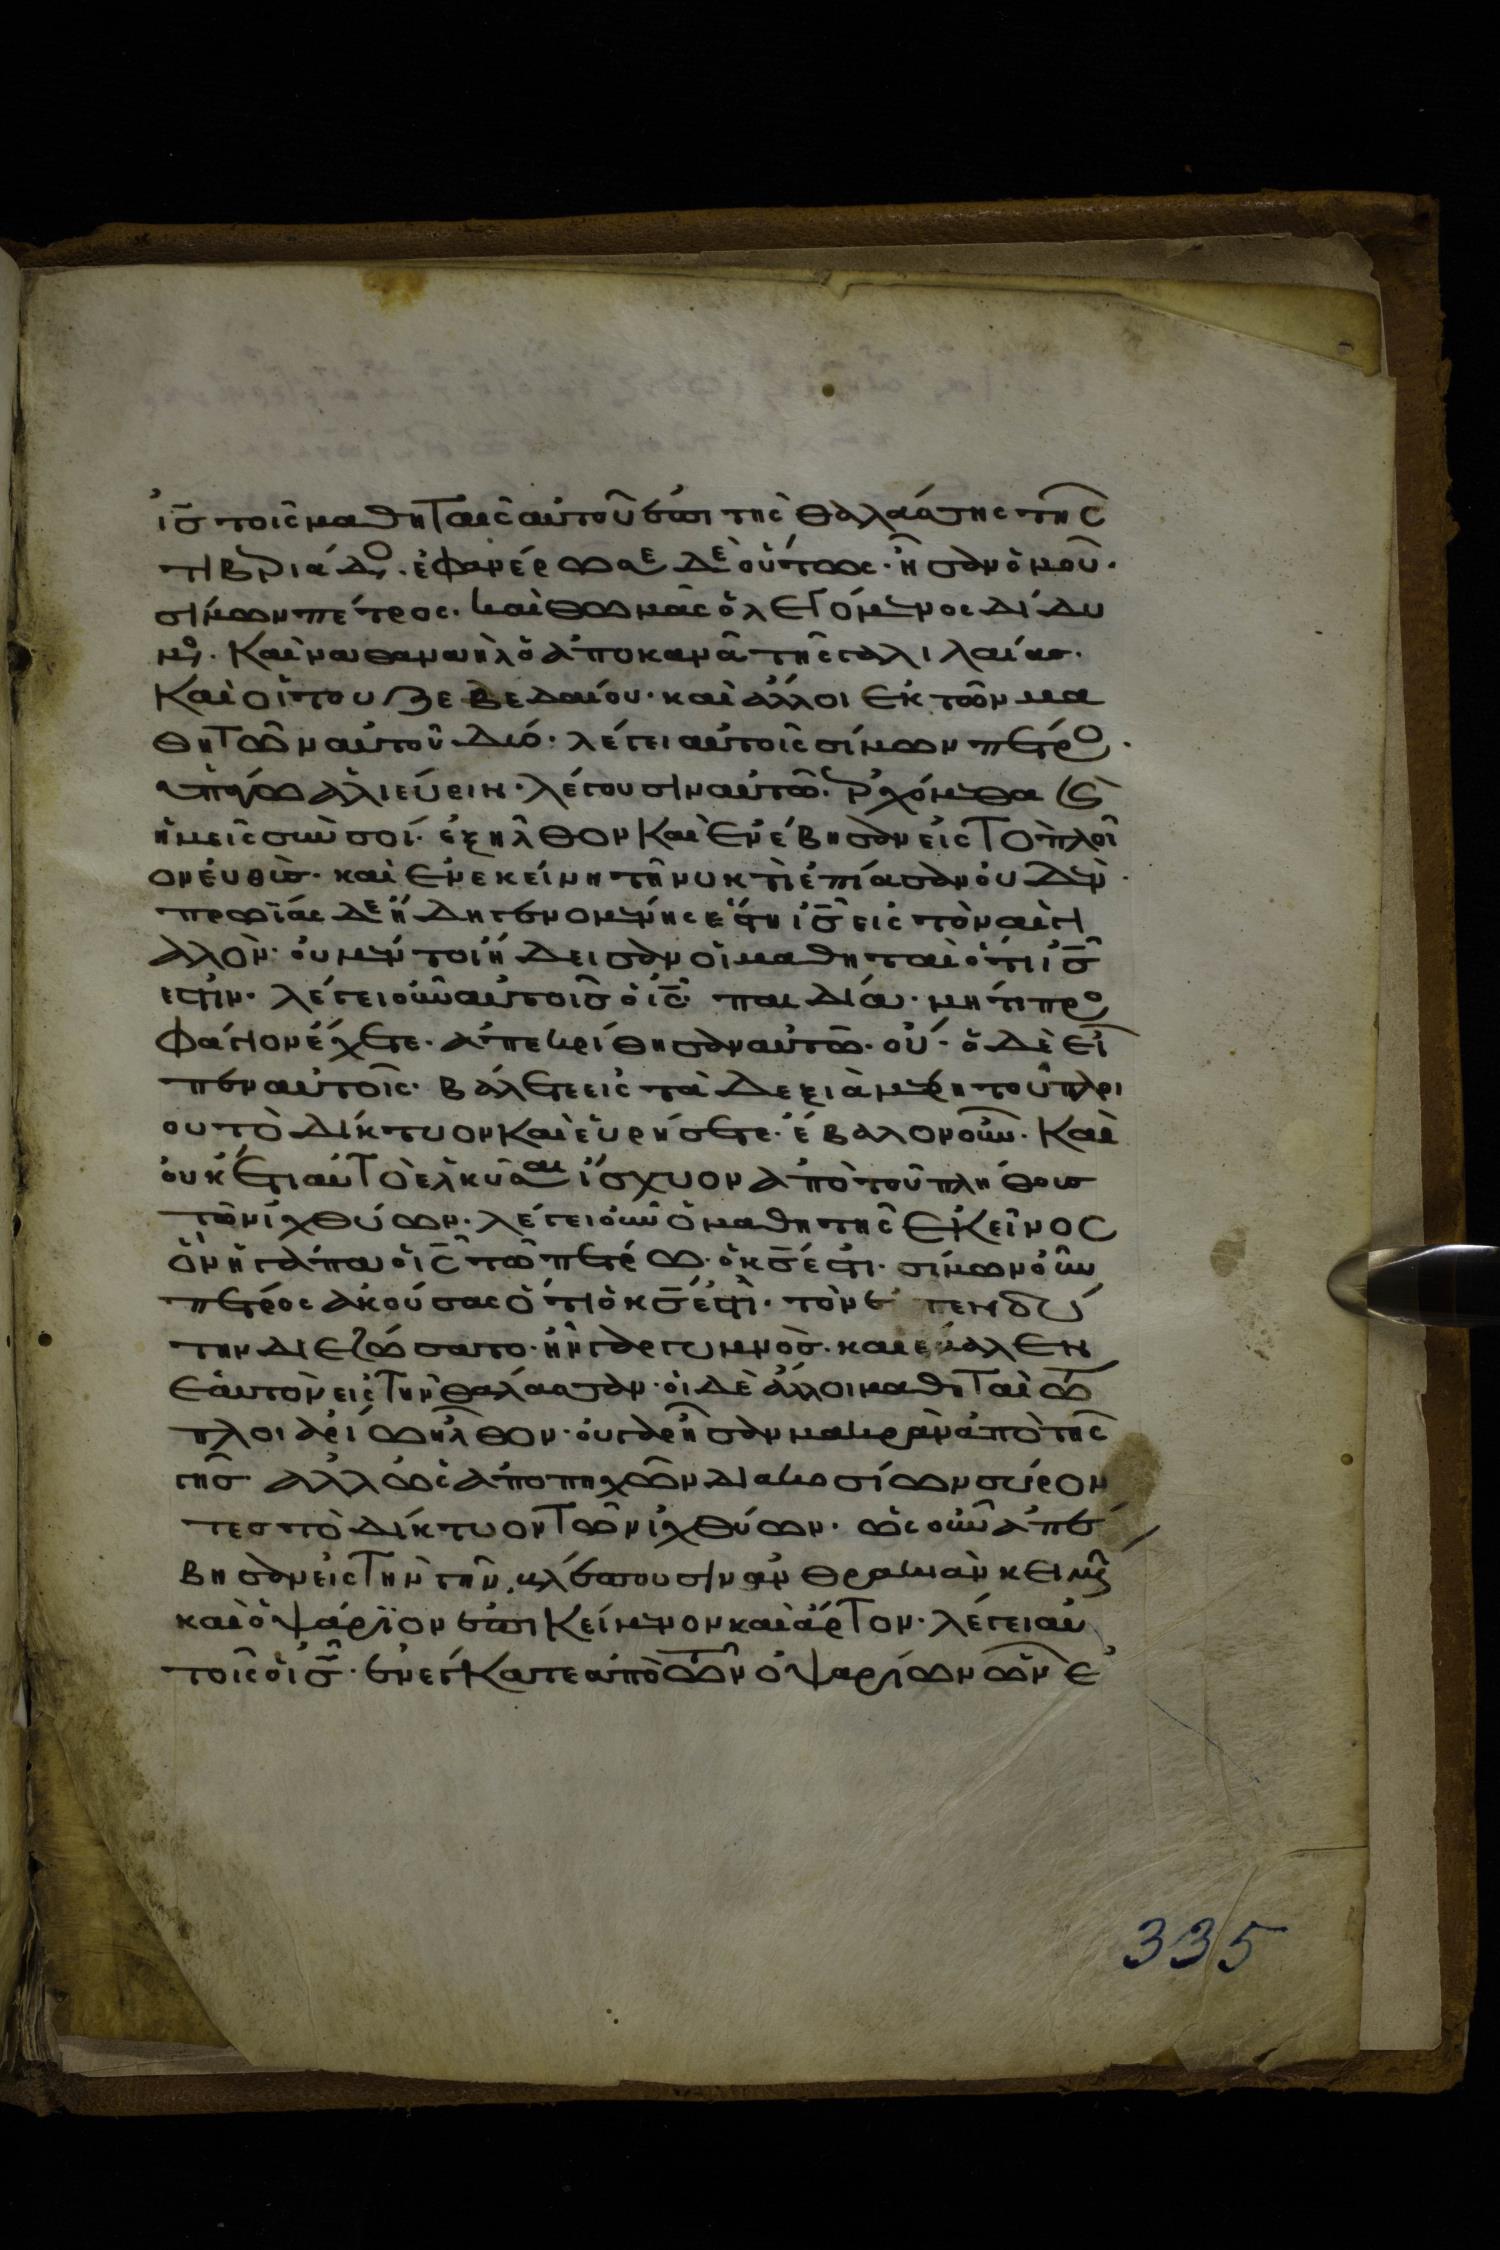 ἰς̅ τοῖς μαθηταῖς αὐτοῦ ἐπὶ τῆς θαλάσσης τῆς
τιβεριάδο. ἐφανέρωσε δὲ οὕτως· ἦσαν ὁμοῦ·
σίμων πέτρος· καὶ θωμᾶς ὁ λεγόμενος δίδυ
μο. καὶ ναθαναὴλ ὁ ἀπὸ κανᾶ τῆς γαλιλαίας·
καὶ οἱ τοῦ ζεβεδαίου· καὶ ἄλλοι ἐκ τῶν μα
θητῶν αὐτοῦ δύο· λέγει αὐτοῖς σίμων πέτρο·
ὑπάγω ἁλιεύειν· λέγουσιν αὐτῶ· ἐρχόμεθα κ
ἡμεῖς σὺν σοί· ἐξῆλθον καὶ ἐνέβησαν εἰς τὸ πλοῖ
ον ἐυθὺς· καὶ ἐν ἐκείνη τῆ νυκτὶ ἐπίασαν ὀυδὲν·
πρωΐας δὲ ἤδη γενομένης ἔστη ἰς̅ εἰς τὸν αἰγι
αλὸν· ὀυ μέντοι ἤδεισαν οἱ μαθηταὶ ὅτι ἰς̅
ἐστιν· λέγει οὖν αὐτοῖς ὁ ἰς̅· παιδία· μή τι προ
φάγιον ἔχετε· ἀπεκρίθησαν αὐτῶ· οὔ· ὁ δὲ εἶ
πεν αὐτοῖς· βάλετε εἰς τὰ δεξιὰ μέρη τοῦ πλοι
ου τὸ δίκτυον καὶ ἑυρήσετε· ἔβαλον οὖν· καὶ
ὀυκέτι αὐτὸ ἑλκύσαι ἴσχυον ἀπὸ τοῦ πλήθους
τῶν ἰχθύων· λέγει οὖν ὁ μαθητὴς ἐκεῖνος
ὃν ἠγάπα ὁ ἰς̅ τῶ πέτρω· ὁ κς̅ ἐστι· σίμων οὖν
πέτρος ἀκούσας ὅτι ὁ κς̅ ἐστὶ· τὸν ἐπενδύ
την διεζώσατο· ἦν γὰρ γυμνὸς· καὶ ἔβαλεν
ἑαυτὸν εἰς τὴν θάλασσαν· οἱ δὲ ἄλλοι μαθηταὶ τῶ
πλοιαρίω ἦλθον· ὀυ γὰρ ἦσαν μακρὰν ἀπὸ τῆς
γῆς ἀλλ ὡς ἀπὸ πηχῶν διακοσίων σύρον
τες τὸ δίκτυον τῶν ἰχθύων· ὡς οὖν ἀπέ
βησαν εἰς τὴν γῆν, βλέπουσιν ἀνθρακιὰν κειμέ
καὶ ὀψάριον ἐπικείμενον καὶ ἄρτον· λέγει αὐ
τοῖς ὁ ἰς̅· ἐνέγκατε ἀπὸ τῶν ὀψαρίων ὧν ἐ
335